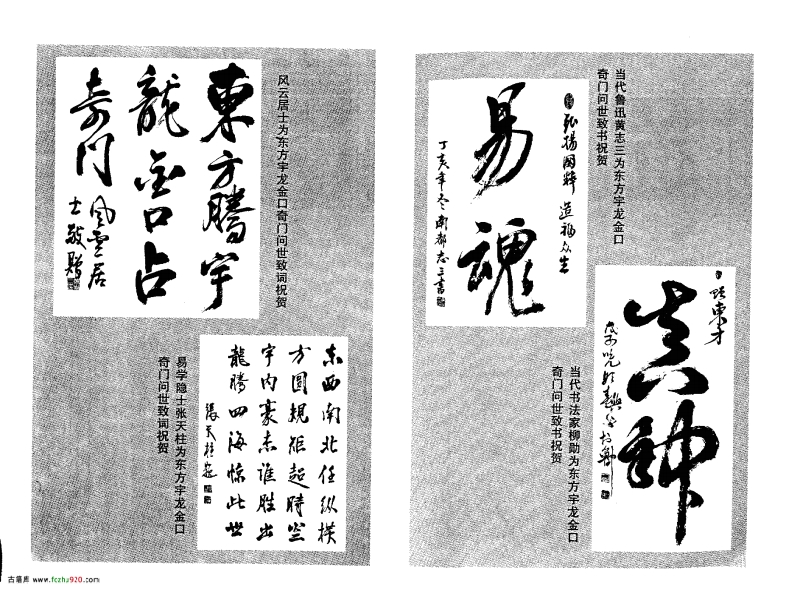 東方騰宇
龍金口占
奇门
風雲居
士敬贈
风云居士为东方宇龙金口奇门问世致词祝贺
东西南北任纵横
方圆规矩起時空
宇内豪杰谁胜出
龍腾四海惊此世
張天柱
易学隐士张天柱为东方宇龙金口
奇门问世致词祝贺
当代鲁迅黄志三为东方宇龙金口
奇门问世致书祝贺
弘揚国粹 造福众生
易魂
丁亥年冬南都志三書
東才
真神
当代书法家柳勋为东方宇龙金口
奇门问世致书祝贺
古籍库 www.fozhu920.com